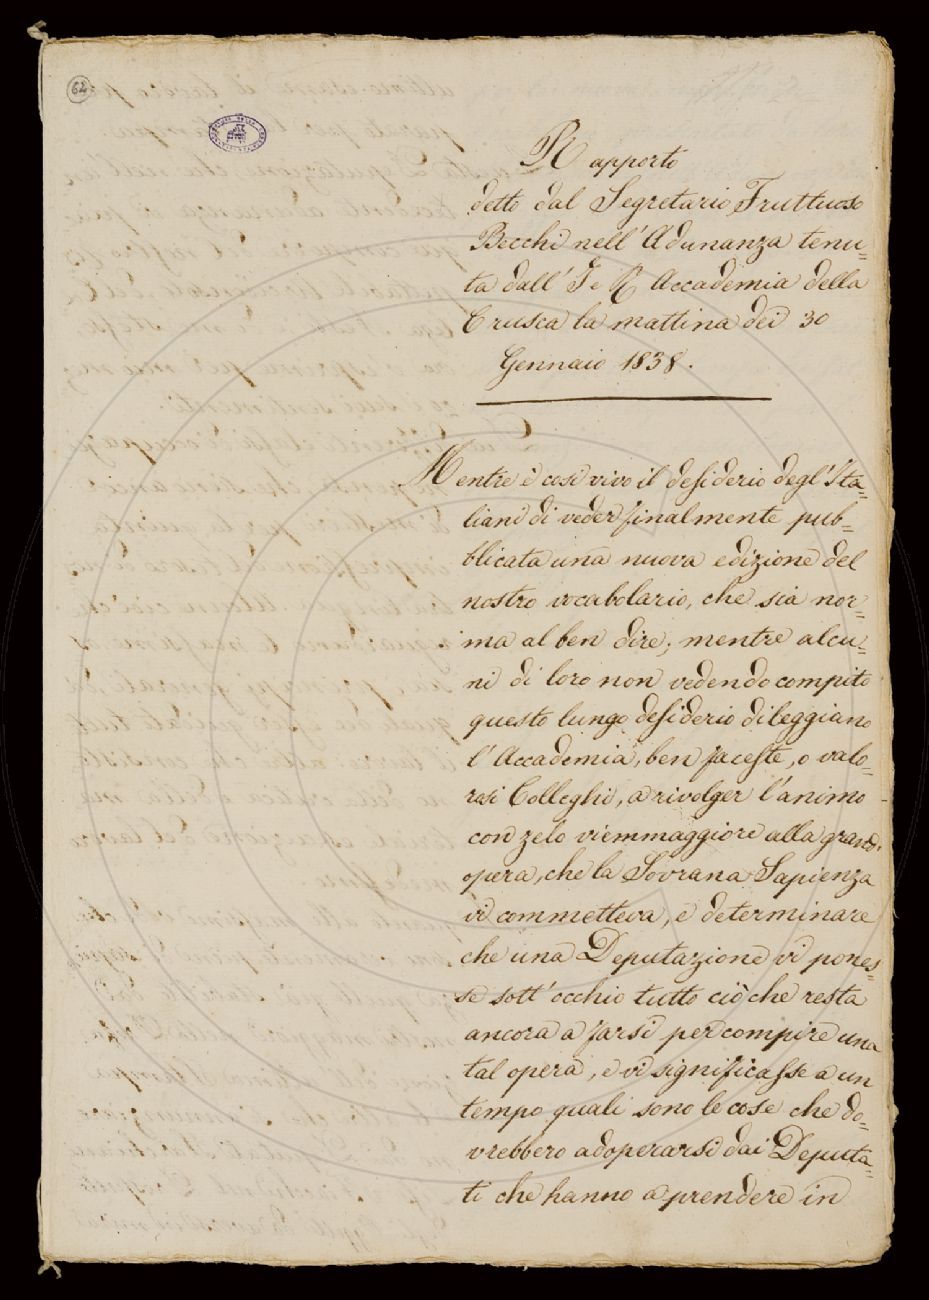 62
Rapporto
detto dal Segretario Fruttuoso
Becchi nell'Adunanza tenu=
ta dall'I e R Accademia della
Crusca la mattina dei 30
Gennaio 1838.
Mentre è così vivo il desiderio degl'Ita=
liani di veder finalmente pub=
blicata una nuova edizione del
nostro vocabolario, che sia nor=
ma al ben dire; mentre alcu=
ni di loro non vedendo compito
questo lungo desiderio dileggiano
l'Accademia, ben faceste, o valo=
rosi Colleghi, a rivolger l'animo
con zelo viemmaggiore alla grand'
opera, che la Sovrana Sapienza
vi commetteva, e determinare
che una Deputazione vi pones=
se sott'occhio tutto ciò che resta
ancora a farsi per compire una
tal opera, e vi significasse a un
tempo quali sono le cose che do=
vrebbero adoperarsi dai Deputa=
ti che hanno a prendere in